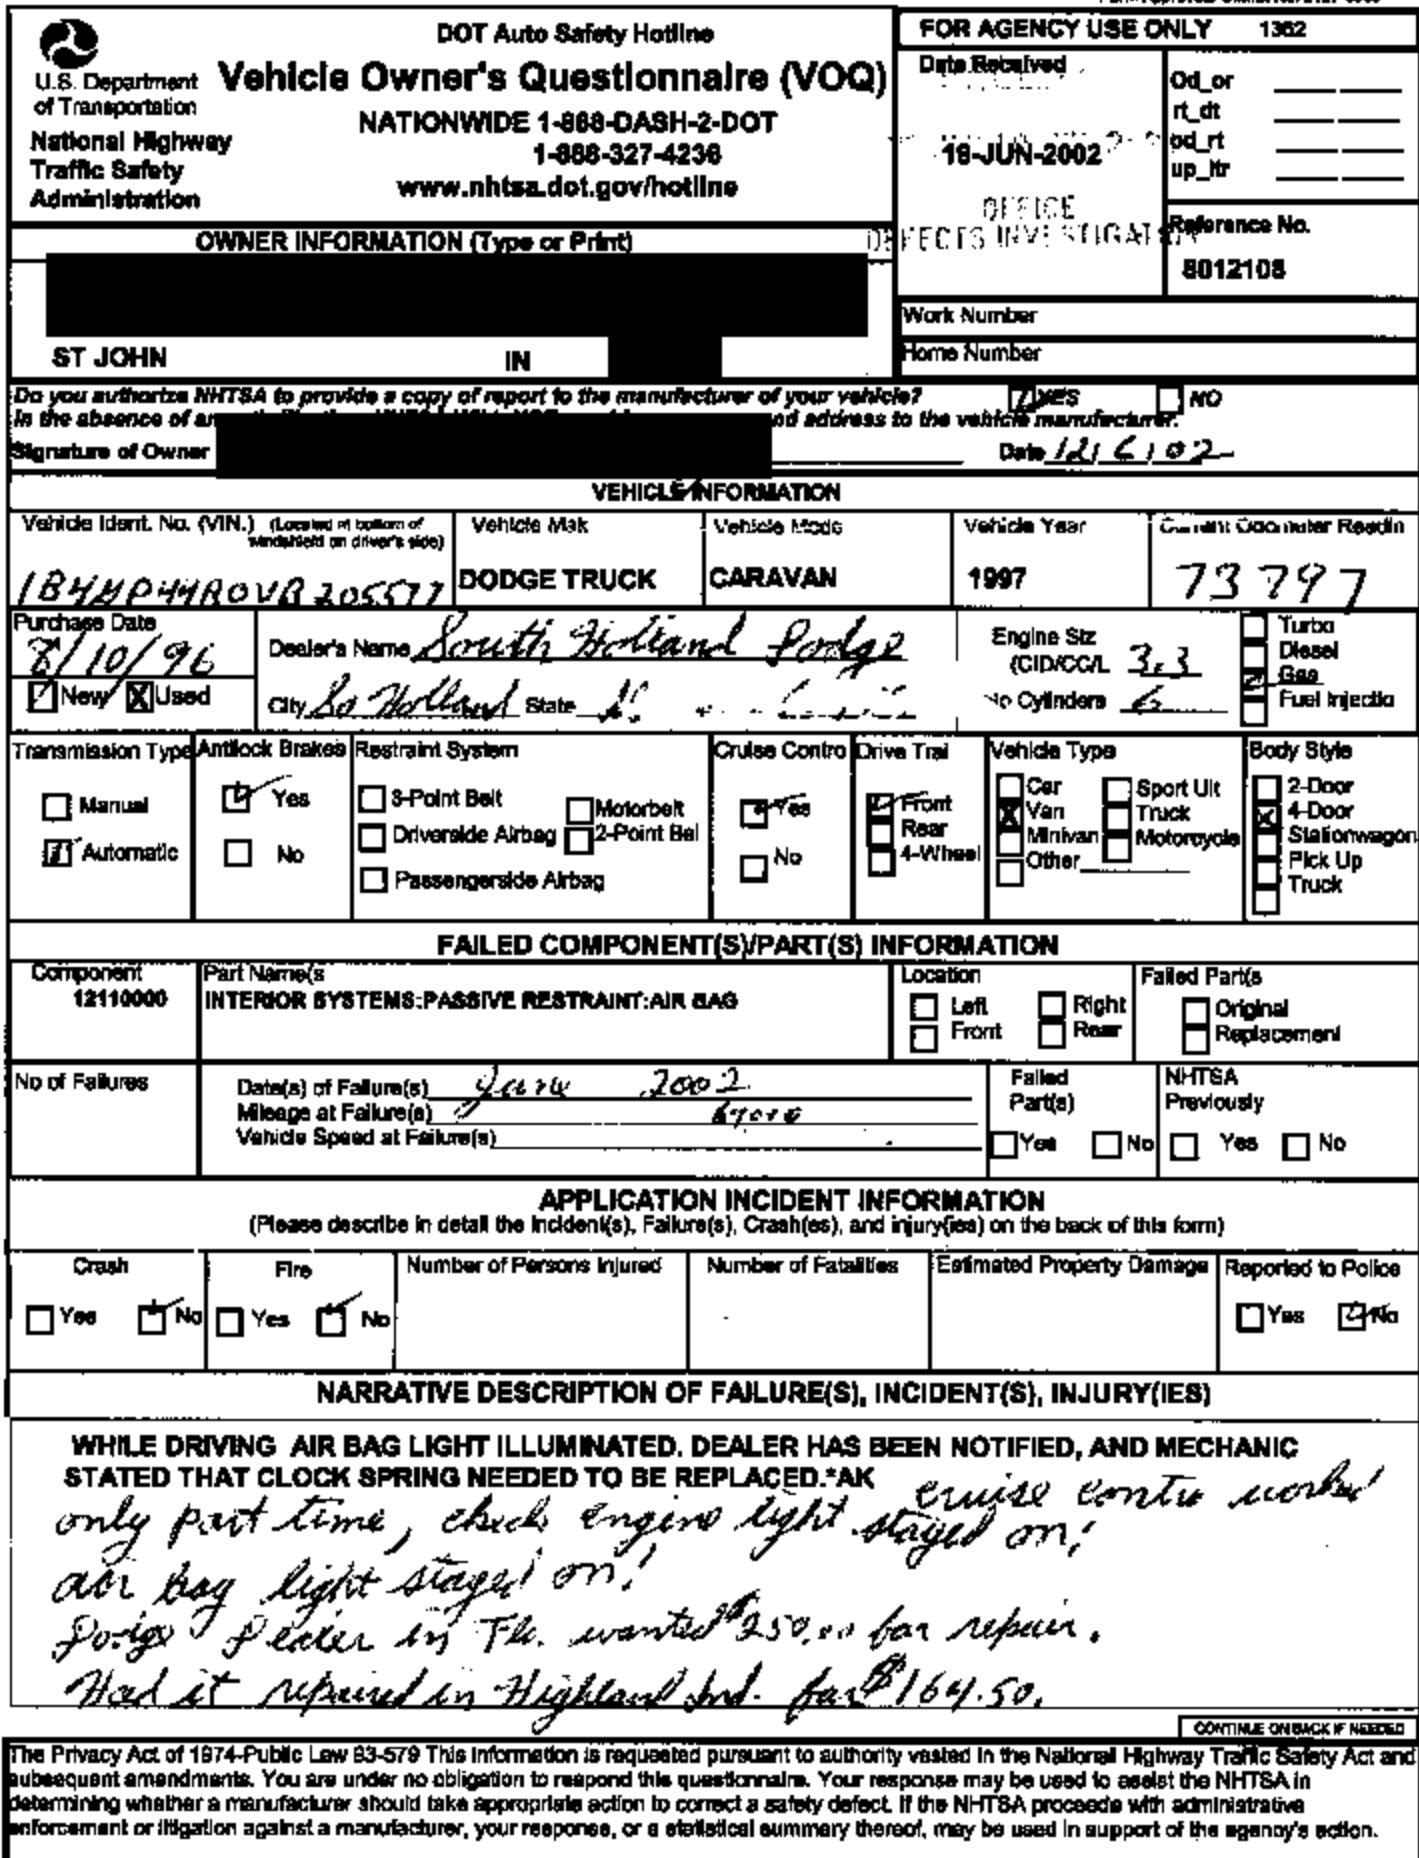 DOT Auto Safety Hotline
Vehicle Owner's Questionnaire (VOQ)
NATIONWIDE 1-888-DASH-2-DOT
1-888-327-4236
www.nhtsa.dot.gov/hotline
U.S. Department
of Transportation
National Highway
Traffic Safety
Administration
FOR AGENCY USE ONLY 1362
Date Received
19-JUN-2002
OFFICE
DEFECTS INVESTIGATION
Od_or
rt_dt
od_rt
up_ltr
Reference No.
8012108
OWNER INFORMATION (Type or Print)
ST JOHN IN
Work Number
Home Number
Do you authorize NHTSA to provide a copy of report to the manufacturer of your vehicle? YES NO
In the absence of an nd address to the vehicle manufacturer.
Signature of Owner Date 12/6/02
VEHICLE INFORMATION
Vehicle Ident. No. (VIN.) (Located at bottom of windshield on driver's side) Vehicle Mak Vehicle Mode Vehicle Year Current Odometer Readin
DODGE TRUCK CARAVAN 1997 73797
Purchase Date
8/10/96
New X Used
Dealer's Name South Holland Dodge
City So Holland State
Engine Siz
(CID/CC/L 3.3
No Cylinders 6
Turbo
Diesel
Gas
Fuel Injectio
Transmission Type
Manual
Automatic
Antilock Brakes
Yes
No
Restraint System
3-Point Belt
Driverside Airbag
Passengerside Airbag
Motorbelt
2-Point Bel
Cruise Contro
Yes
No
Drive Trai
Front
Rear
4-Wheel
Vehicle Type
Car
X Van
Minivan
Other
Sport Ult
Truck
Motorcycle
Body Style
2-Door
X 4-Door
Stationwagon
Pick Up
Truck
FAILED COMPONENT(S)/PART(S) INFORMATION
Component
12110000
Part Name(s
INTERIOR SYSTEMS:PASSIVE RESTRAINT:AIR BAG
Location
Left Right
Front Rear
Failed Part(s
Original
Replacement
No of Failures
Date(s) of Failure(s) June 2002
Mileage at Failure(s)
Vehicle Speed at Failure(s)
Failed
Part(s)
Yes No
NHTSA
Previously
Yes No
APPLICATION INCIDENT INFORMATION
(Please describe in detail the Incident(s), Failure(s), Crash(es), and injury(ies) on the back of this form)
Crash
Yes No
Fire
Yes No
Number of Persons Injured
Number of Fatalities
Estimated Property Damage
Reported to Police
Yes No
NARRATIVE DESCRIPTION OF FAILURE(S), INCIDENT(S), INJURY(IES)
WHILE DRIVING AIR BAG LIGHT ILLUMINATED. DEALER HAS BEEN NOTIFIED, AND MECHANIC
STATED THAT CLOCK SPRING NEEDED TO BE REPLACED.*AK cruise contro worked
only part time, check engine light stayed on!
air bag light stayed on!
Dodge Dealer in wanted $250.00 for repair.
Had it repaired in Highland Ind. for $164.50.
CONTINUE ON BACK IF NEEDED
The Privacy Act of 1974-Public Law 93-579 This information is requested pursuant to authority vested in the National Highway Traffic Safety Act and
subsequent amendments. You are under no obligation to respond this questionnaire. Your response may be used to assist the NHTSA in
determining whether a manufacturer should take appropriate action to correct a safety defect. If the NHTSA proceeds with administrative
enforcement or litigation against a manufacturer, your response, or a statistical summary thereof, may be used in support of the agency's action.